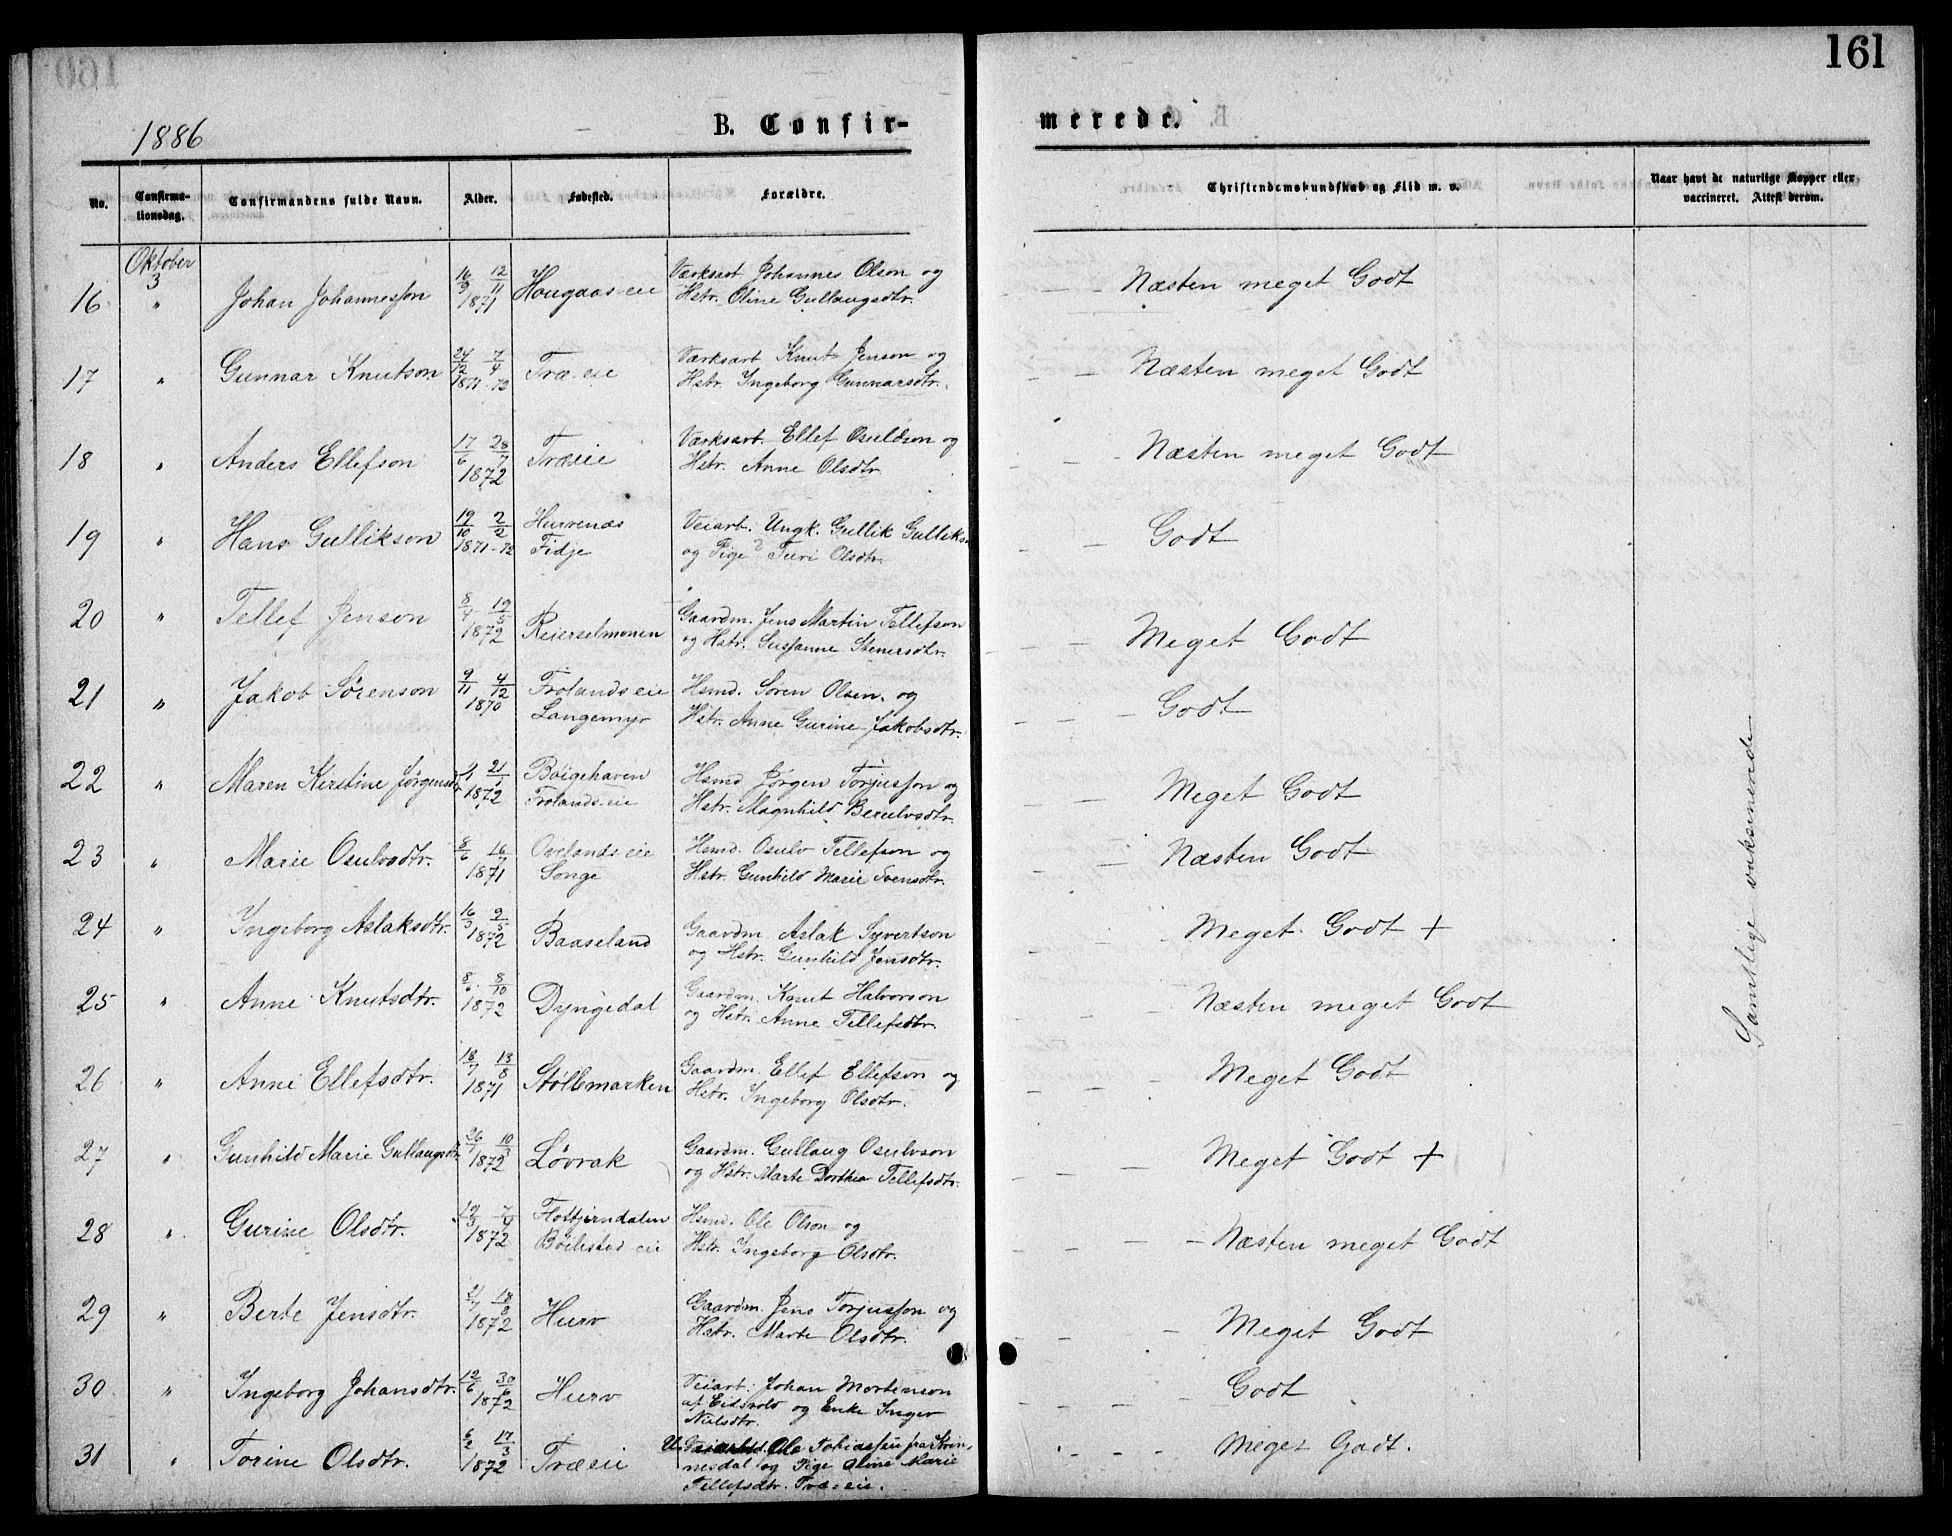 161
1886
B. Confir-
merede.
No.
Confirma-
tionsdag.
Confirmandens fulde Navn.
Alder.
Fødested.
Forældre.
Christendomskundskab og Flid m. v.
Naar havt de naturlige Kopper eller
vaccineret. Attest derom.
Oktober
3
16 " Johan Johannesson 16/9 12/11 1871 Hougaas-eie Værksarb Johannes Olson og
Hstr. Oline Gullaugsdtr. Næsten meget Godt
17 " Gunnar Knutson 24/12 7/4 1871-72 Træ-eie Værksarb Knut Jenson og
Hstr. Ingeborg Gunnarsdtr. Næsten meget Godt
18 " Anders Ellefson 17/6 28/7 1872 Træeie Værksarb. Ellef Osuldson og
Hstr. Anne Olsdtr. Næsten meget Godt
19 " Hans Gullikson 19/10 2/2 1871-72 Hurvenæs Veiarb. Ungk. Gullik Gulliks.
Fidje og Pige Turi Olsdtr. Godt
20 " Tellef Jenson 8/4 19/5 1872 Reierselmonen Gaardm. Jens Martin Tellefson
og Hstr. Susanne Stenersdtr. Meget Godt
21 " Jakob Sørenson 9/11 4/12 1870 Frolands eie Hsmd. Søren Olsen. og
Langemyr Hstr. Anne Gurine Jakobsdtr. Godt
22 " Maren Kirstine Jørgensdtr 21/1 1872 Bøigehaven Hsmd Jørgen Torjusson og
Frolands-eie Hstr. Magnhild Berulvsdtr. Meget Godt
23 " Marie Osulvsdtr. 8/6 16/7 1871 Ovelands eie Hsmd. Osulv Tellefson og
Songe Hstr. Gunhild Marie Svensdtr. Næsten Godt
24 " Ingeborg Aslaksdtr. 16/3 9/5 1872 Baaseland Gaardm Aslak Syvertson
og Hstr. Gunhild Jensdtr. Meget Godt +
25 " Anne Knutsdtr. 8/6 8/10 1872 Dyngedal Gaardm. Knut Halvorson
og Hstr. Anne Tellefsdtr. Næsten meget Godt
26 " Anne Ellefsdtr. 18/7 13/8 1871 Stølemarken Gaardm. Ellef Ellefson og
Hstr. Ingeborg Olsdtr. Meget Godt
27 " Gunhild Marie Gullaugsdtr. 26/1 10/3 1872 Løvrak Gaardm. Gullaug Osulvson
og Hstr. Marte Dorthea Tellefsdtr. Meget Godt +
28 " Gurine Olsdtr. 12/3 7/4 1872 Flottjerndalen Hsmd. Ole Olson og
Bøilestad eie Hstr. Ingeborg Olsdtr. Næsten meget Godt
29 " Berte Jensdtr. 21/7 18/8 1872 Hurv Gaardm. Jens Torjusson og
Hstr. Marte Olsdtr. Meget Godt
30 " Ingeborg Johansdtr. 12/6 30/6 1872 Hurv Veiarb. Johan Mortenson
af Eidsvold og Enke Inger
Nielsdtr. Godt
31 " Torine Olsdtr. 6/2 17/3 1872 Træeie Ole Tobiassen fra Kvin-
nesdal og Pige Oline Marie
Tellefsdtr. Træ-eie. Meget Godt.
Samtlige vaksinerede